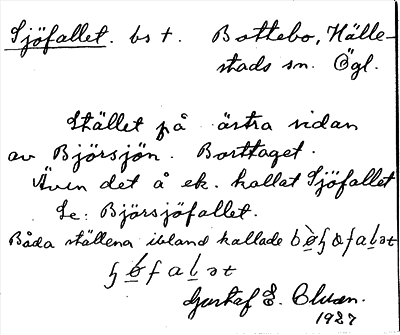 Sjöfallet. bs t. Bottebo, Hälle-
stads sn. Ögl.
Stället på östra sidan
av Björsjön. Borttaget.
Även det å ek. kallat Sjöfallet
Se: Björsjöfallet.
Båda ställena ibland kallade
Gustaf E.
1927